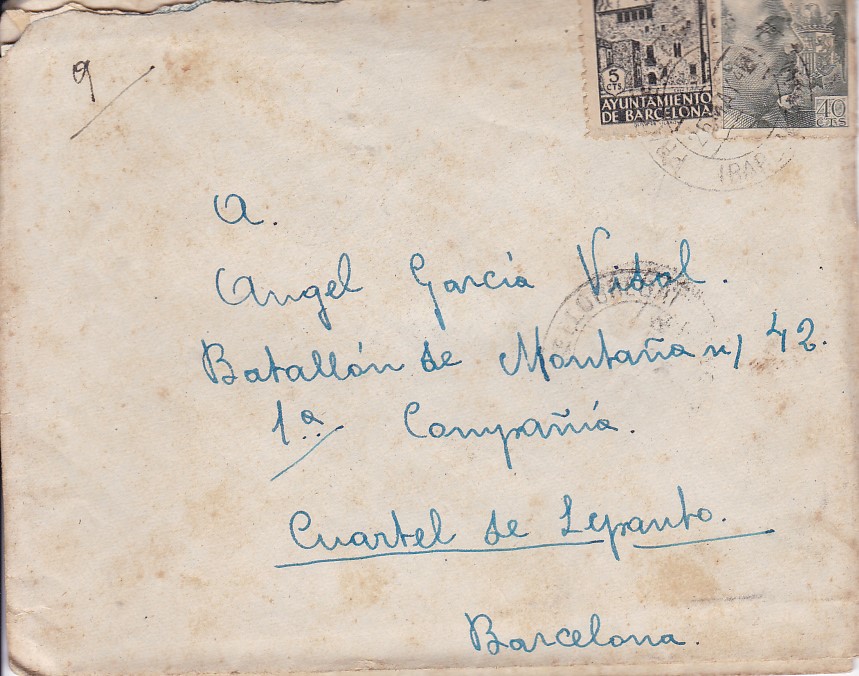 9
5
CTS
AYUNTAMIENTO
DE BARCELONA
40
CTS
A.
Angel García Vidal.
Batallón de Montaña n/ 42.
1ª Compañía.
Cuartel de Lepanto.
Barcelona.